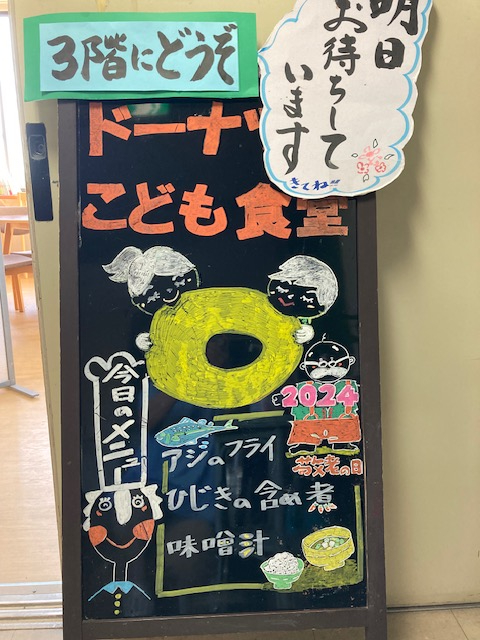 3階にどうぞ
明日
お待ちして
います
きてね
ドーナツ
こども食堂
今日のメニュー
2024
敬老の日
アジのフライ
ひじきの含め煮
味噌汁